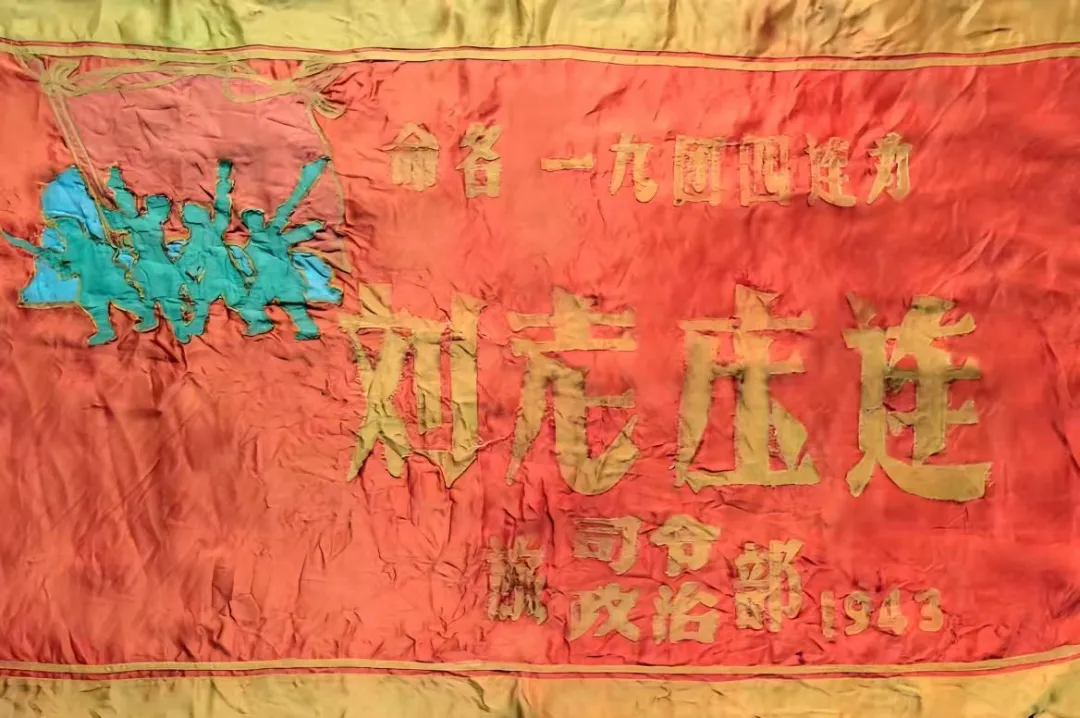 命名 一九团四连为
刘老庄连
旅
司令
政治
部 1943